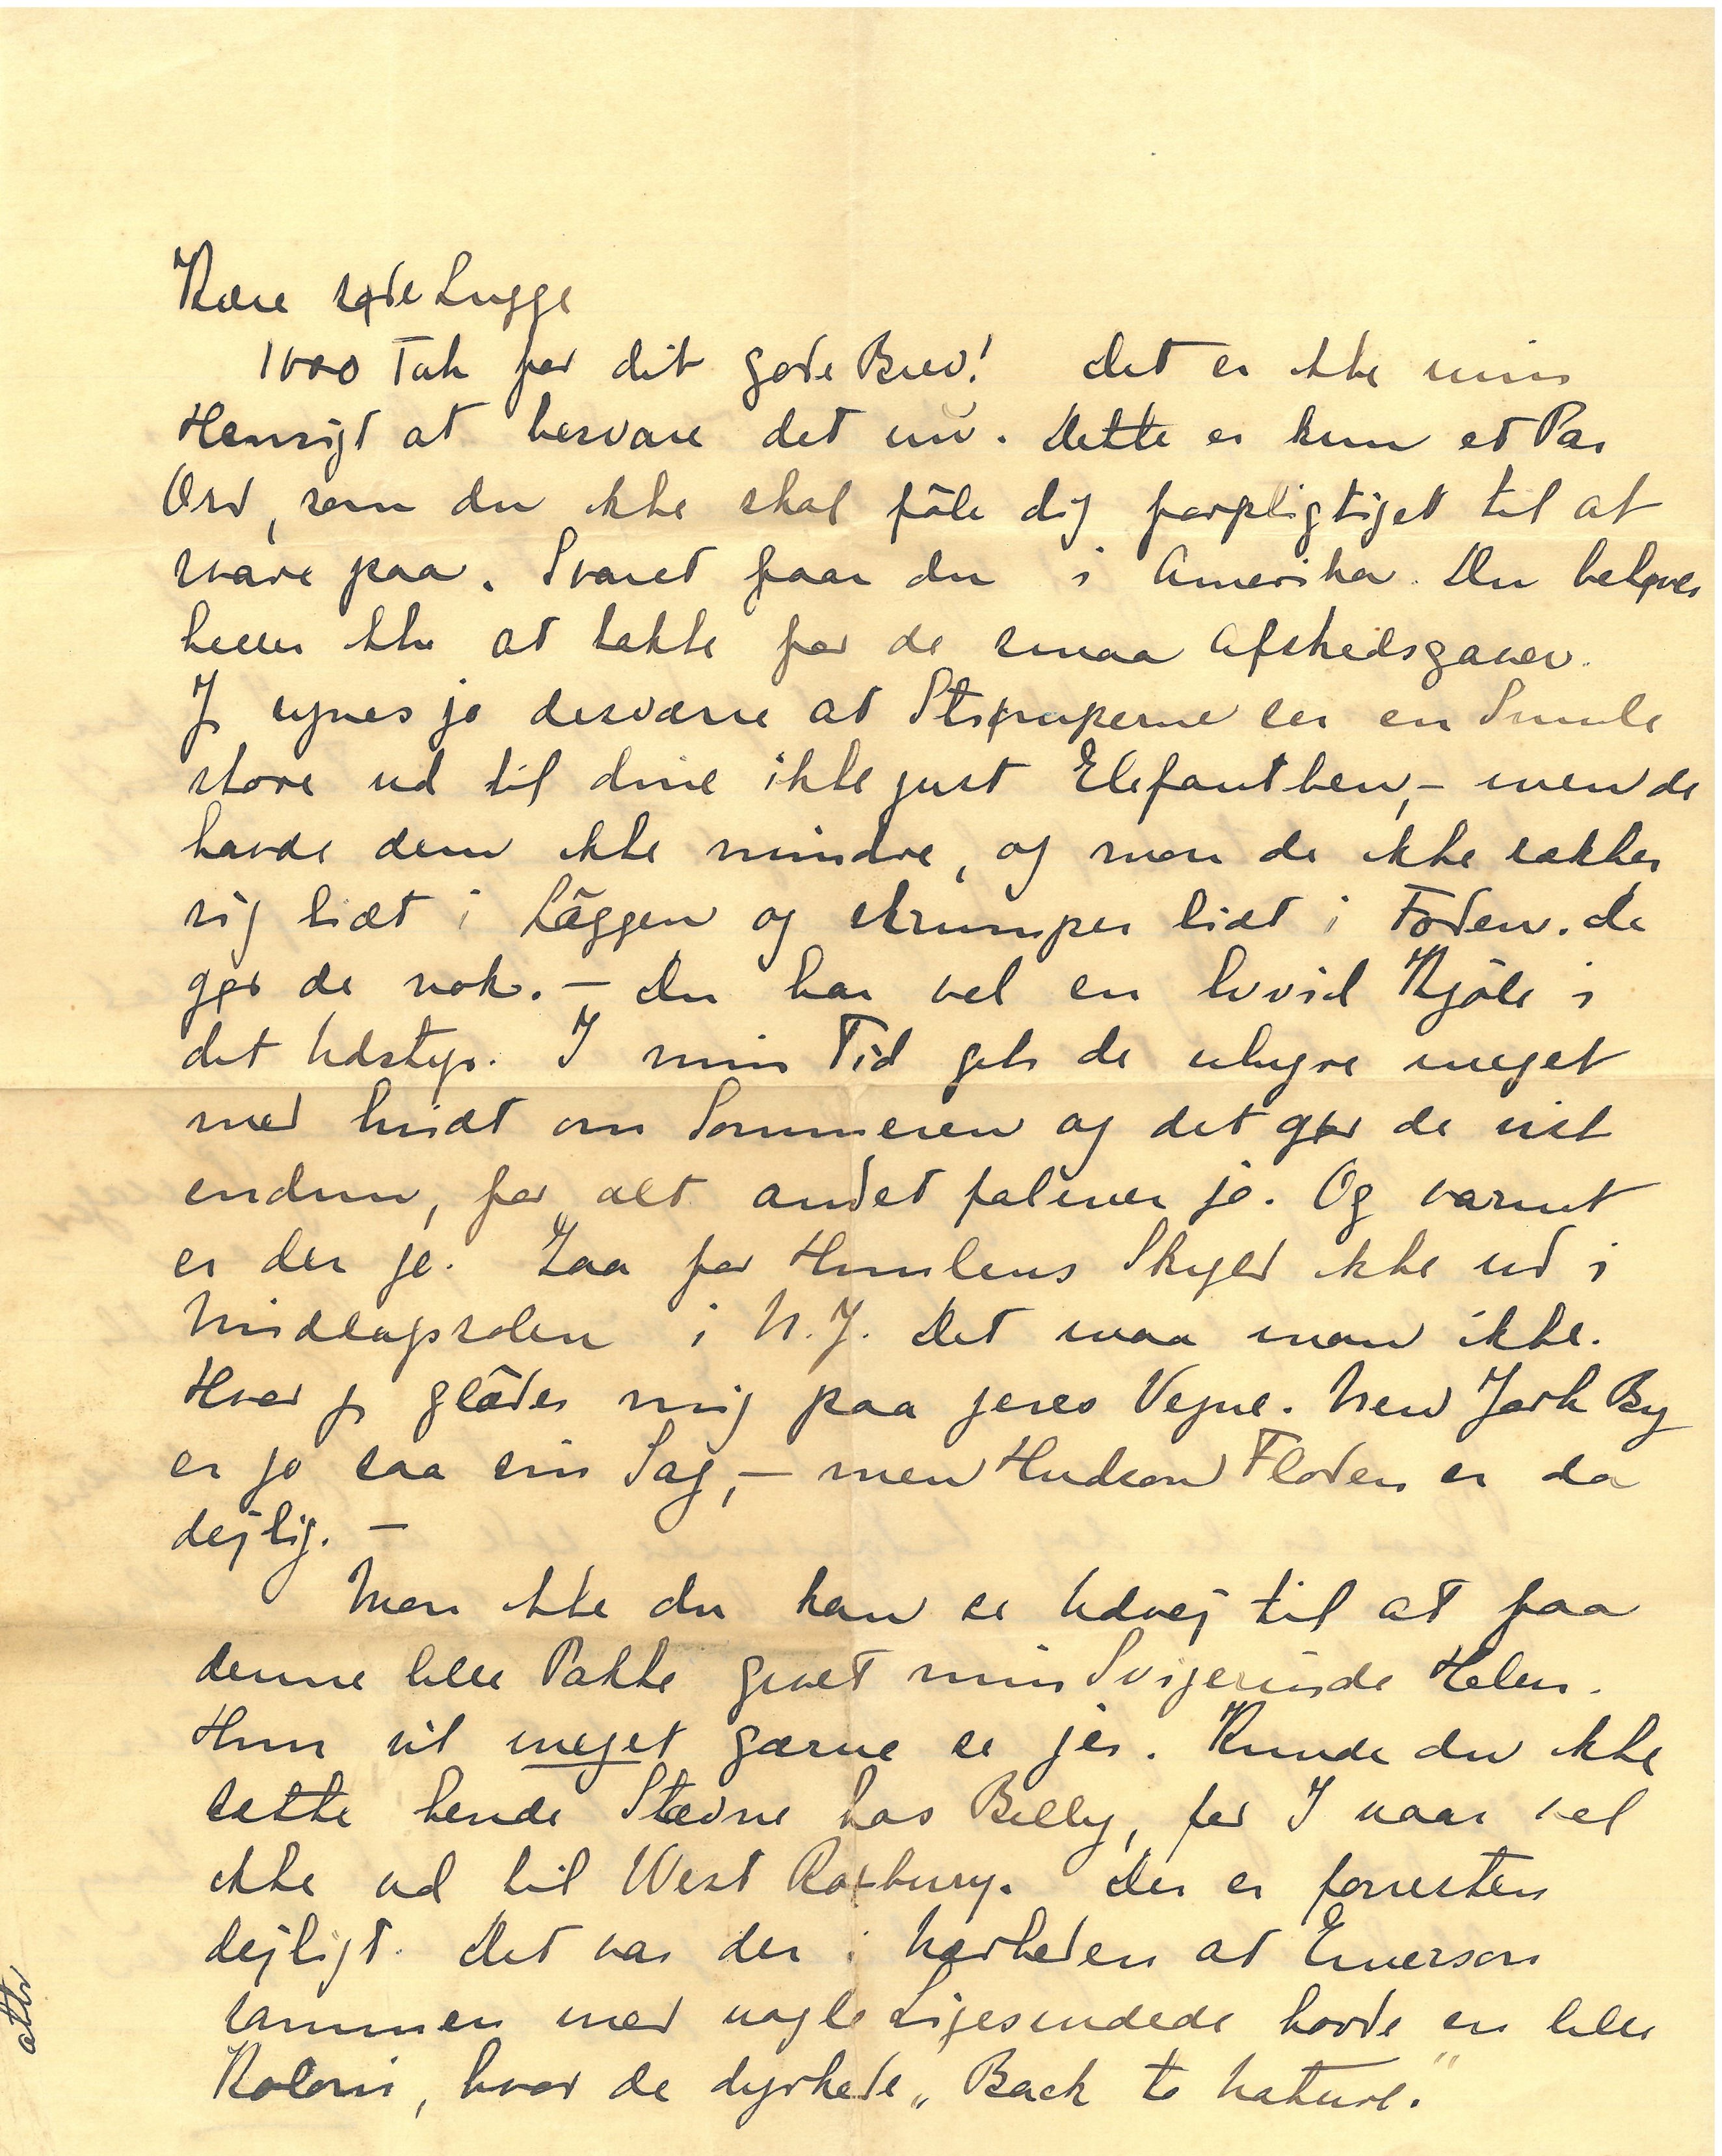 Kære søde Lugge
1000 Tak for dit gode Brev! Det er ikke min
Hensigt at besvare det nu. Dette er kun et Par
Ord, som du ikke skal føle dig forpligtiget til at
svare paa. Svaret faar du i Amerika. Du behøver
heller ikke at takke for de smaa Afskedsgaver.
Jg synes jo desværre at Strømperne ser en Smule
store ud til dine ikke just Elefantben, – men de
havde dem ikke mindre, og mon de ikke sækker
sig lidt i Läggen og skrumper lidt i Foden. de
gør de nok. – Du har vel en hvid Kjole i
det Udstyr. I min Tid gik de uhyre meget
med hvidt om Sommeren og det gør de vist
endnu, for alt andet falmer jo. Og varmt
er der jo. Gaa for Himlens Skyld ikke ud i
Middagssolen i N.J. Det maa man ikke.
Hvor jg gläder mig paa jeres Vegne. New York By
er jo saa sin Sag, – men Hudson Floden er da
dejlig. –
Mon ikke du kan se Udvej til at faa
denne lille Pakke givet min Svigerinde Helen.
Hun vil meget gærne se jer. Kunde du ikke
sætte hende Stævne hos Belly, for I naar vel
ikke ud til West Roxbury. Der er forresten
dejligt. Det var der i Nærheden at Emerson
sammen med nogle Ligesindede havde en lille
Koloni, hvor de dyrkede „Back to Nature."